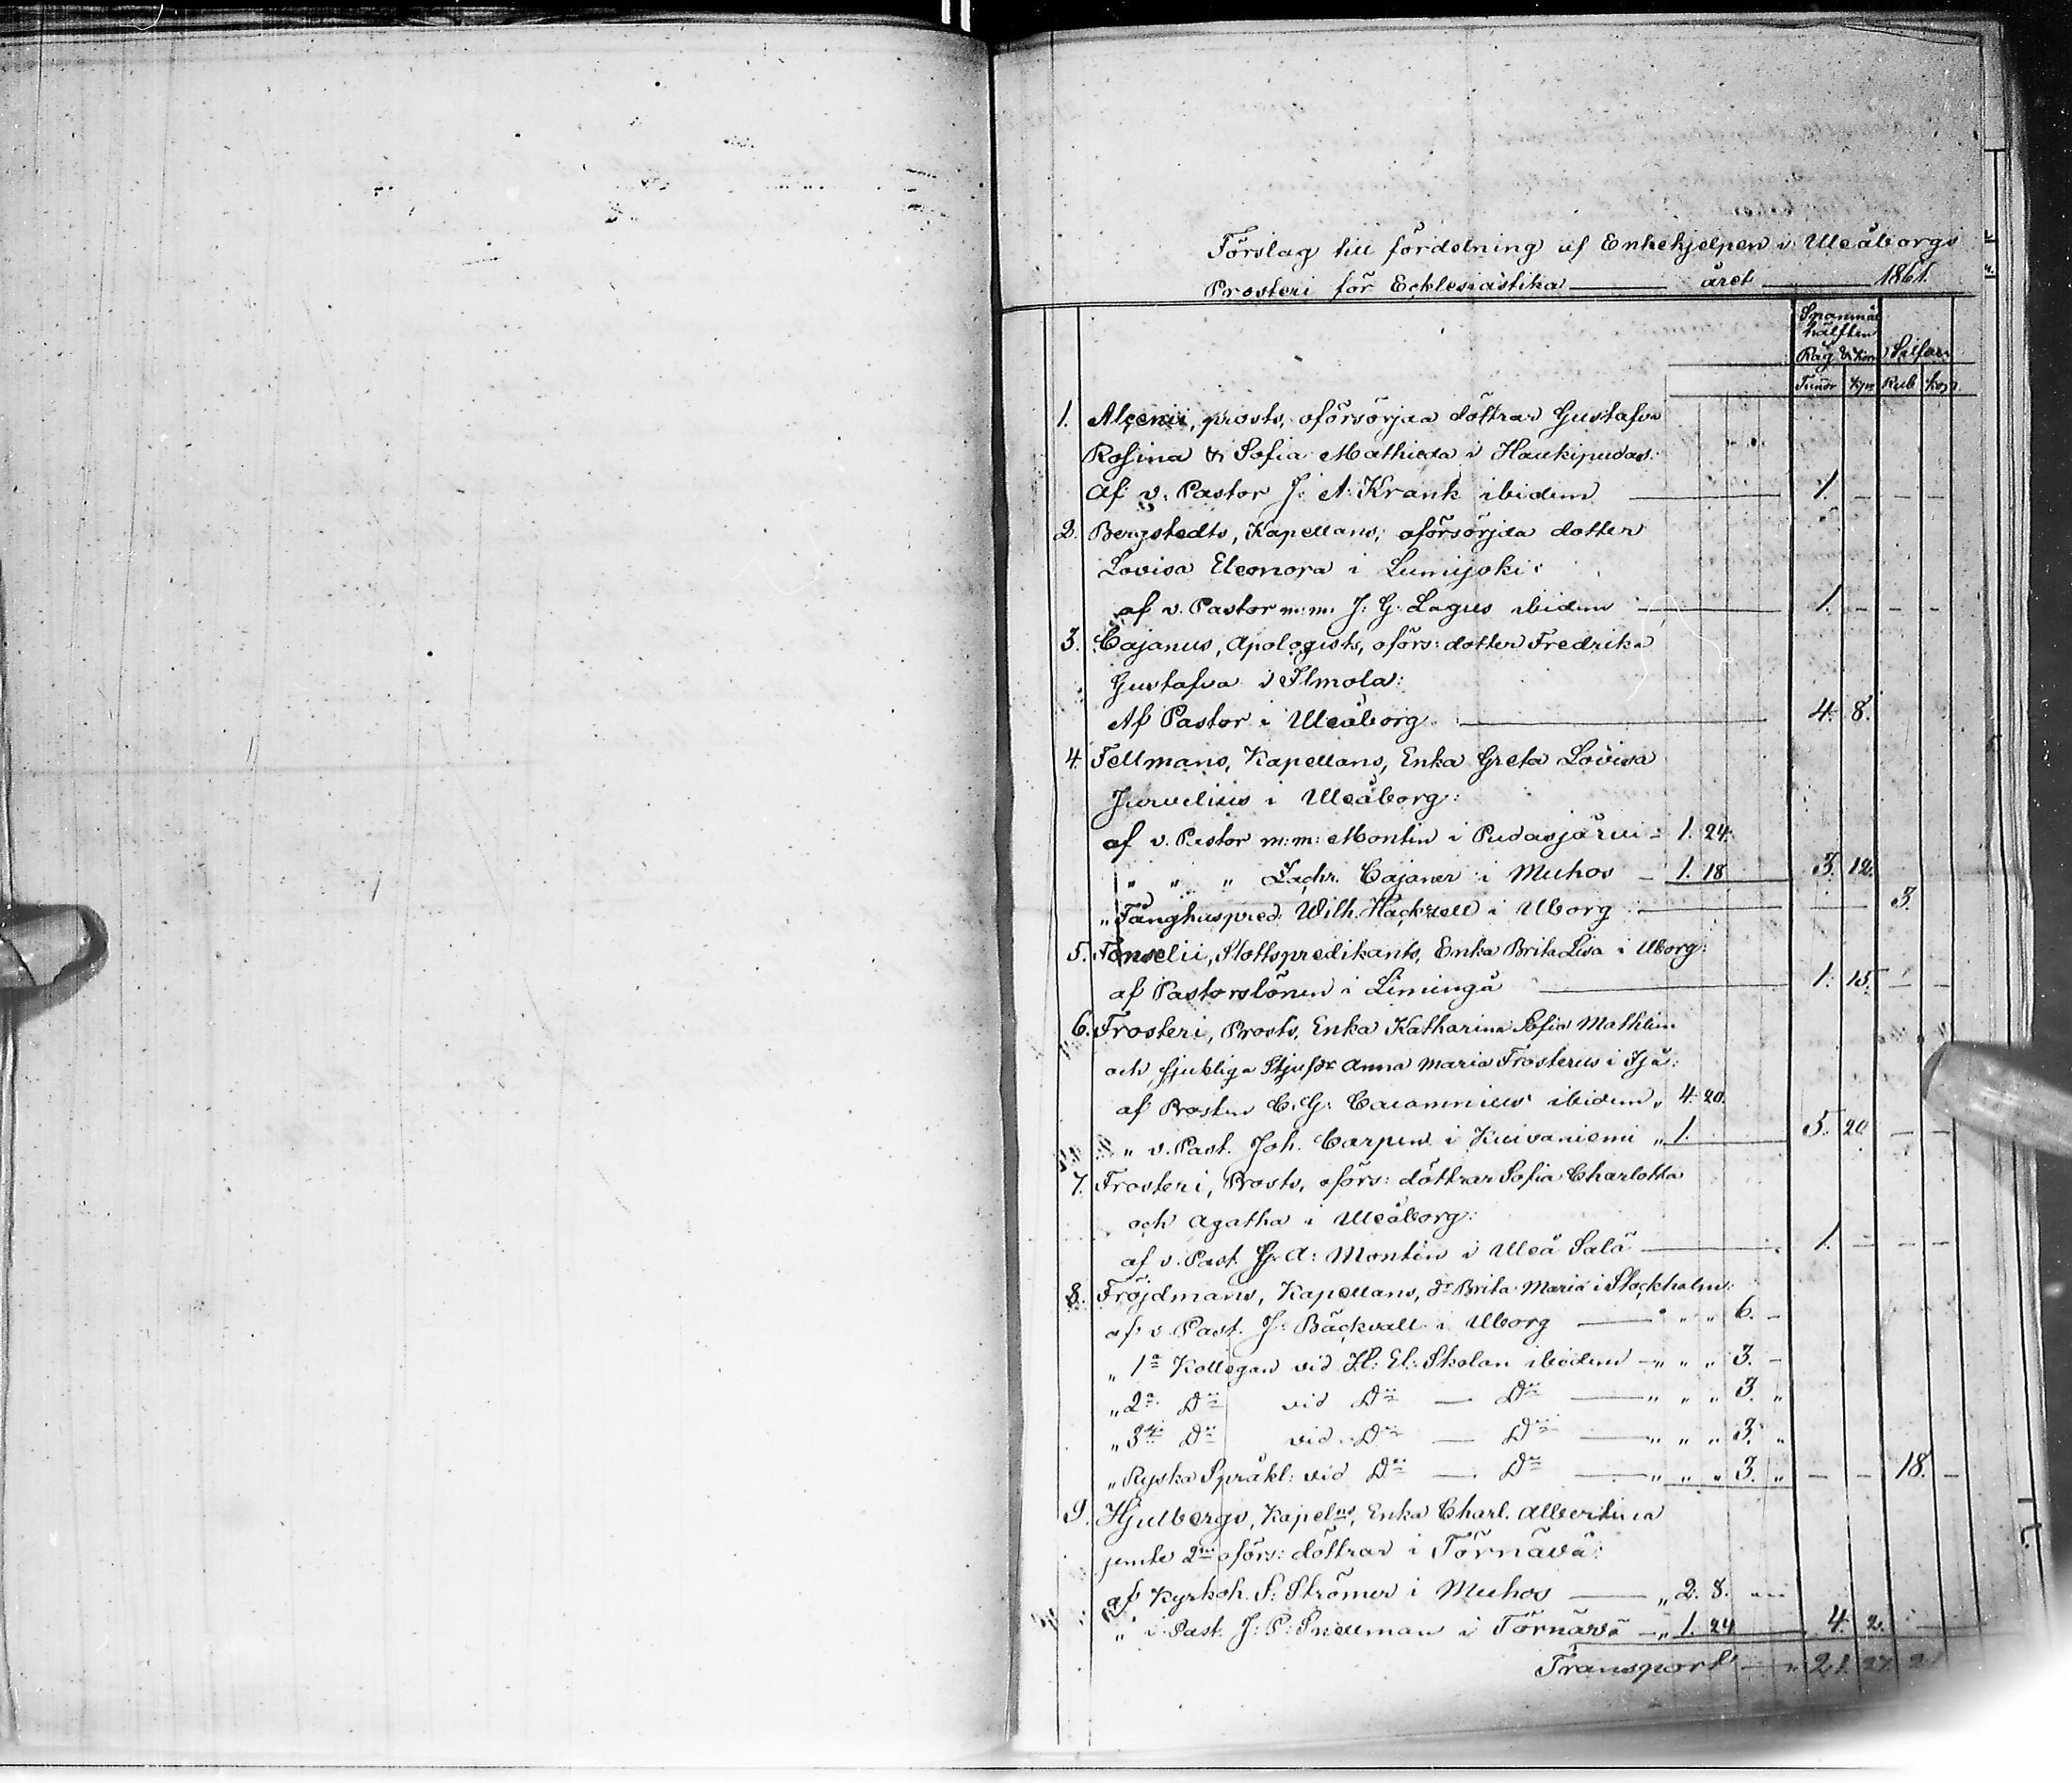 Förslag till fördelning af Enkehjelpen i Uleåborgs
Prosteri för Ecklesiastika ——— året ——— 1861.
Spanmål
hälften
Råg & Korn Silfver
Tunnr Kpr Rub Kop.
1. Alcenii, prosts, oförsörjda döttrar Gustafva
Rosina & Sofia Mathilda i Haukipudas:
af v. Pastor J. A. Krank ibidem ——— 1. – – –
2. Bergstedts, Kapellans, oförsörjda dotter
Lovisa Eleonora i Lumijoki:
af v. Pastor m.m. J. G. Lagus ibidem ——— 1. – – –
3. Cajanus, Apologists, oförs: dotter Fredrika
Gustafva i Ilmola:
Af Pastor i Uleåborg ——— 4. 8.
4. Fellmans, Kapellans, Enka Greta Lovisa
Jurvelius i Uleåborg:
af v. Pastor m:m: Montin i Pudasjärvi – 1. 24.
" " " Zachr. Cajaner i Muhos – 1. 18 3. 12.
" Fånghuspred: Wilh. Hackzell i Uborg ——— 3.
5. Fonselii, Slottspredikants, Enka Brita Lisa i Uborg:
af Pastorslönen i Limingå ——— 1. 15. – –
6. Frosteri, Prosts, Enka Katharina Sofia Mathlin
och sjukliga Stjufdr Anna Maria Frosterus i Ijå:
af Prosten C. G. Calamnius ibidem " 4. 20.
" v. Past. Joh. Carpen i Kuivaniemi " 1. 5. 20 – –
7. Frosteri, Prosts, oförs: döttrar Sofia Charlotta
och Agatha i Uleåborg:
af v. Past. G. A: Montin i Uleå Salo ——— 1. – – –
8. Fröjdmans, Kapellans, dr Brita Maria i Stockholm:
af v. Past. J: Bäckvall i Uborg ——— " " 6. –
" 1a Kollegan vid H: El: Skolan ibidem – " " " 3. –
" 2a Do vid Do — Do ——— " " " 3. "
" 3je Do vid Do — Do ——— " " " 3. "
" Ryska Språkl: vid Do — Do ——— " " " 3. " – – 18. –
9. Hjulbergs, Kapelns, Enka Charl. Albertina
jemte 2ne oförs: döttrar i Törnävä:
af Kyrkoh. S: Strömer i Muhos ——— " 2. 8.
" v. Past. J: P: Snellman i Törnävä – " 1. 24 4. 2. – –
Transport — " 21. 27. 21